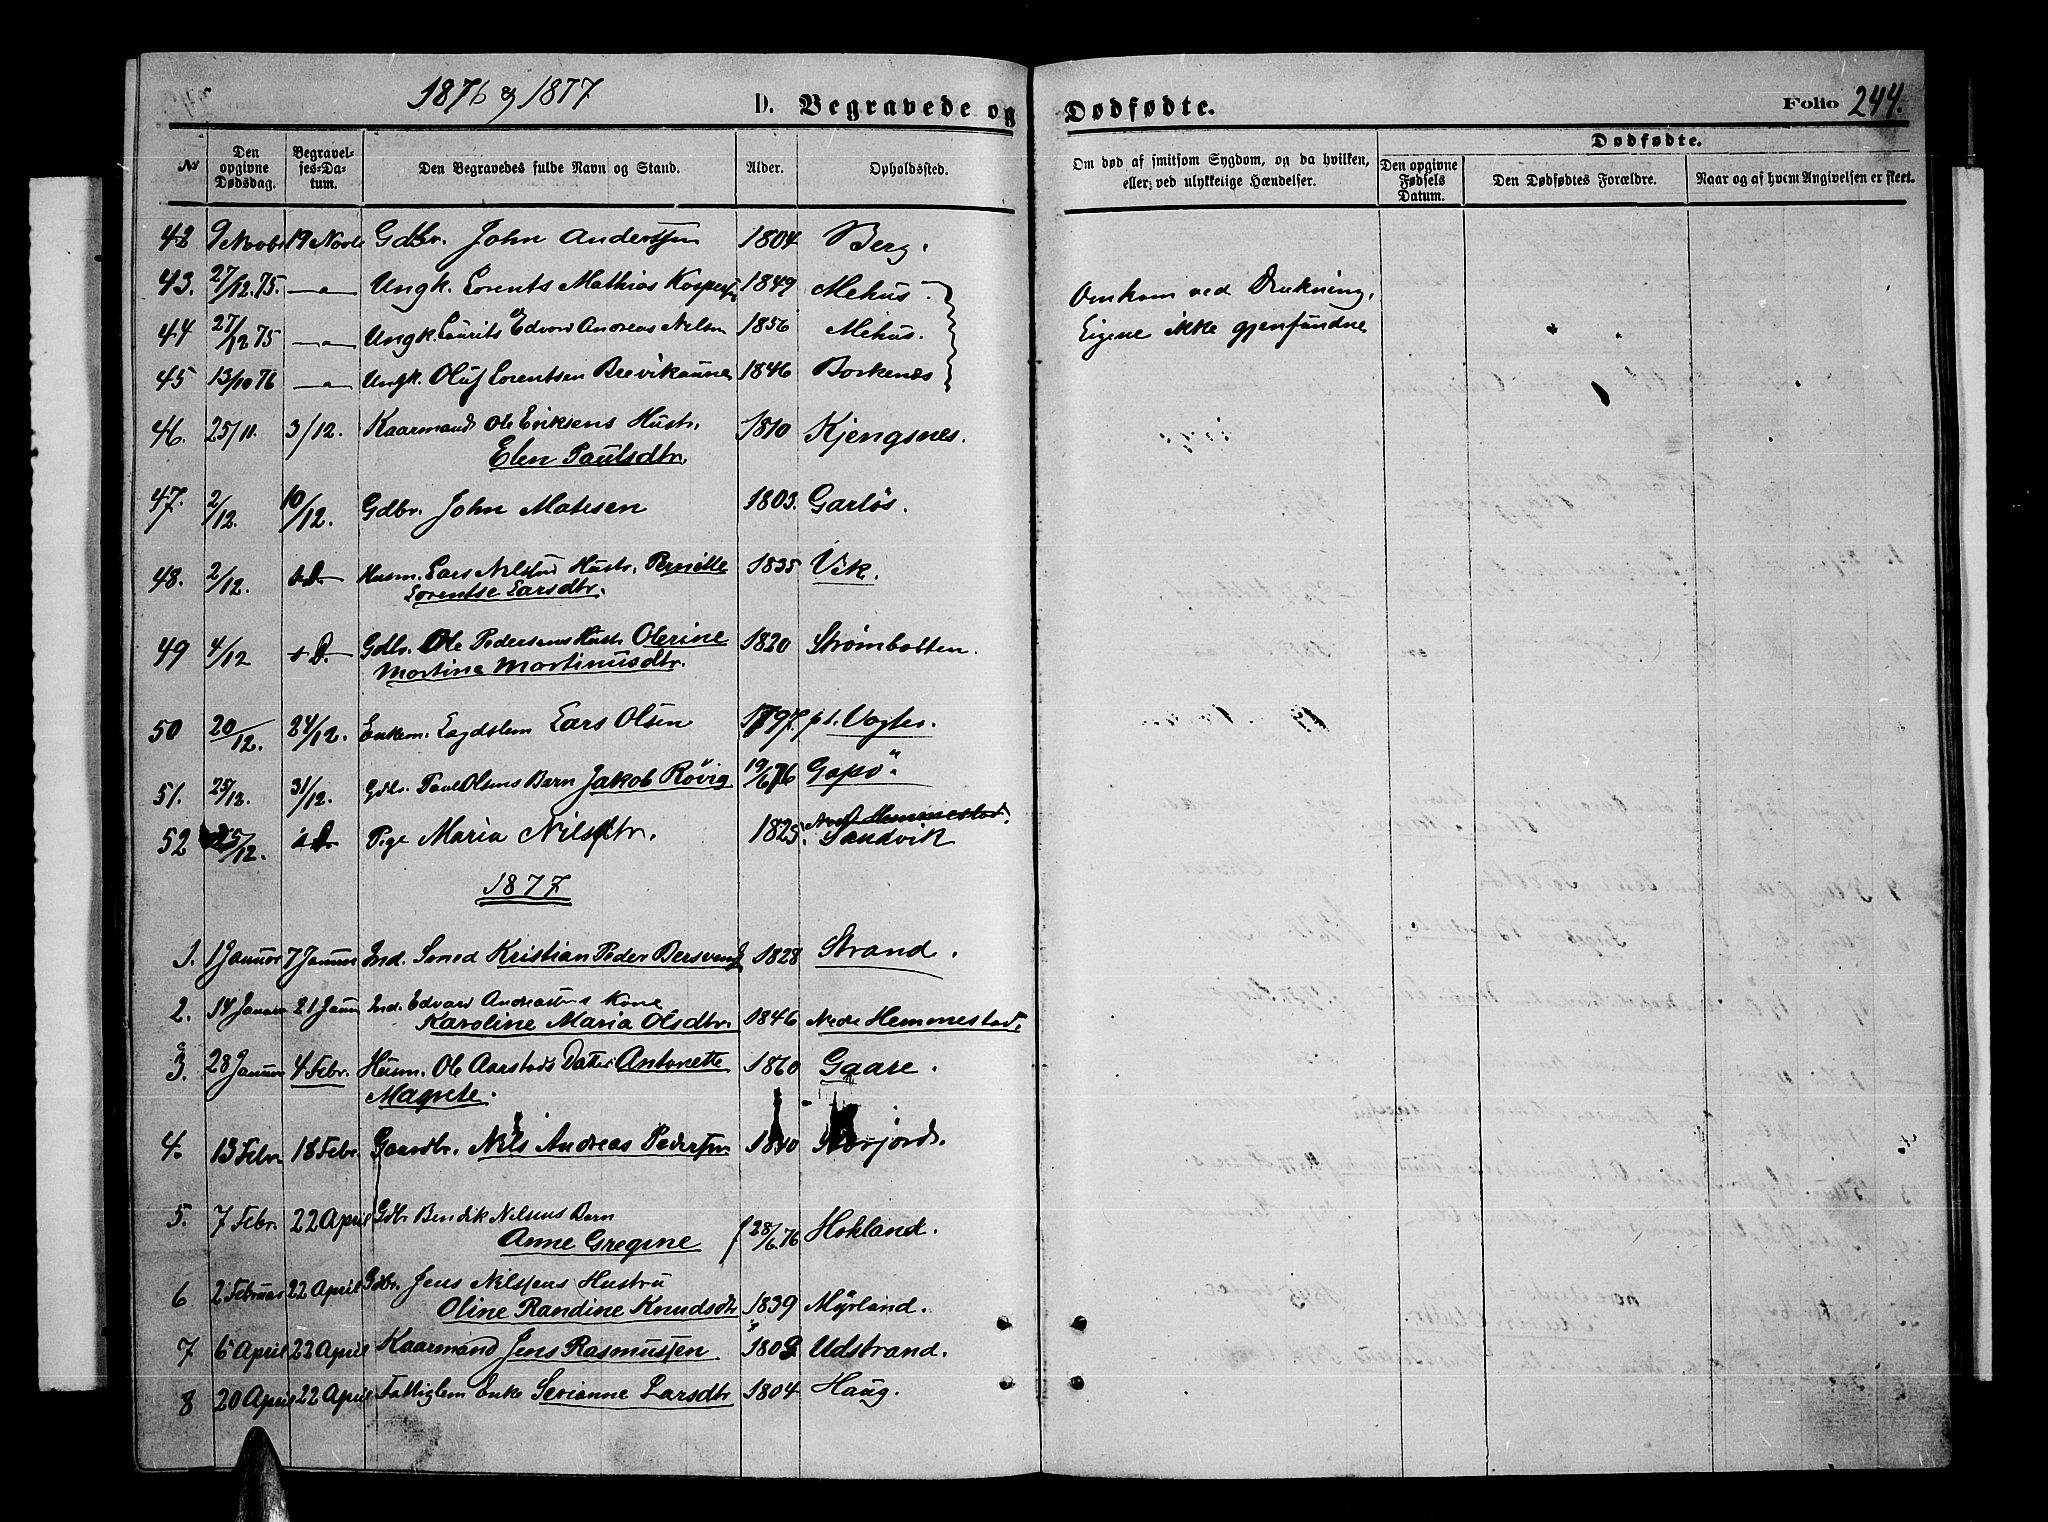 1876 & 1877
D. Begravede og Dødfødte.
Folio 244.
No
Den opgivne Dødsdag.
Begravelses-Datum.
Den Begravedes fulde Navn og Stand.
Alder.
Opholdssted.
Om død af smitsom Sygdom, og da hvilken, eller ved ulykkelige Hændelser.
Dødfødte.
Den opgivne Fødsels Datum.
Den Dødfødtes Forældre.
Naar og af hvem Angivelsen er skeet.
42 9 Novbr 19 Novbr Gdbr. John Anderssen 1804 Berg.
43. 27/12.75. —"— Ungk. Lorents Mathias 1849 Mehus. Omkom ved Drukning,
44 27/12 75 —"— Ungk. Laurits Edvard Andreas Nilsen 1856 Mehus. Ligene ikke gjenfundne
45 13/10 76 —"— Ungk. Oluf Lorentsen Brevikaune 1846 Borkenes
46. 25/11. 3/12. Kaarmand Ole Eriksens Hustr. 1810 Kjengsnes.
Elen Paulsdtr.
47. 2/12. 10/12. Gdbr. John Matesen 1803. Garløs.
48. 2/12. Husm. Lars Hustr. Pernille 1835 Vik.
Lorentse Larsdtr.
49 4/12 Gdbr. Ole Pedersens Hustr Olerine 1820 Strømbotten.
Martine Martinusdtr.
50 20/12. 24/12. Enkem. Lægdslem Lars Olsen 1797. pt. Vogter.
51. 25/12. 31/12. Gdbr. Paul Olsens Barn Jakob Røvig 19/6 76 Gapø.
Nedre Hemmestad.
52 25/12. Pige Maria Nilsdtr. 1825. Sandvik
1877
1. 1 Januar 7 Januar Ind. Smed Kristian Peder 1828 Strand.
2. 14 Januar 21 Januar Ind. Edvard Kone
Karoline Maria Olsdtr. 1846 Nedre Hemmestad.
3. 28 Januar 4 Febr. Husm. Ole Aarstads Datter Antonette 1860 Gaare.
Magrete.
4. 13 Febr. 18 Febr. Gaardbr. Nils Andreas Pedersen
5. 7 Febr. 22 April Gdbr Bendik Nilsens Barn
Anne Gregine f 28/6.76 Hokland.
6 2 Februar 22 April Gdbr. Jens Nilssens Hustru
Oline Randine Knudsdtr 1839 Myrland.
7 6 April 22 April Kaarmand Jens Rasmussen 1803 Udstrand.
8 20 April 22 April Fattiglem Enke Serianne Larsdtr 1804 Haug.